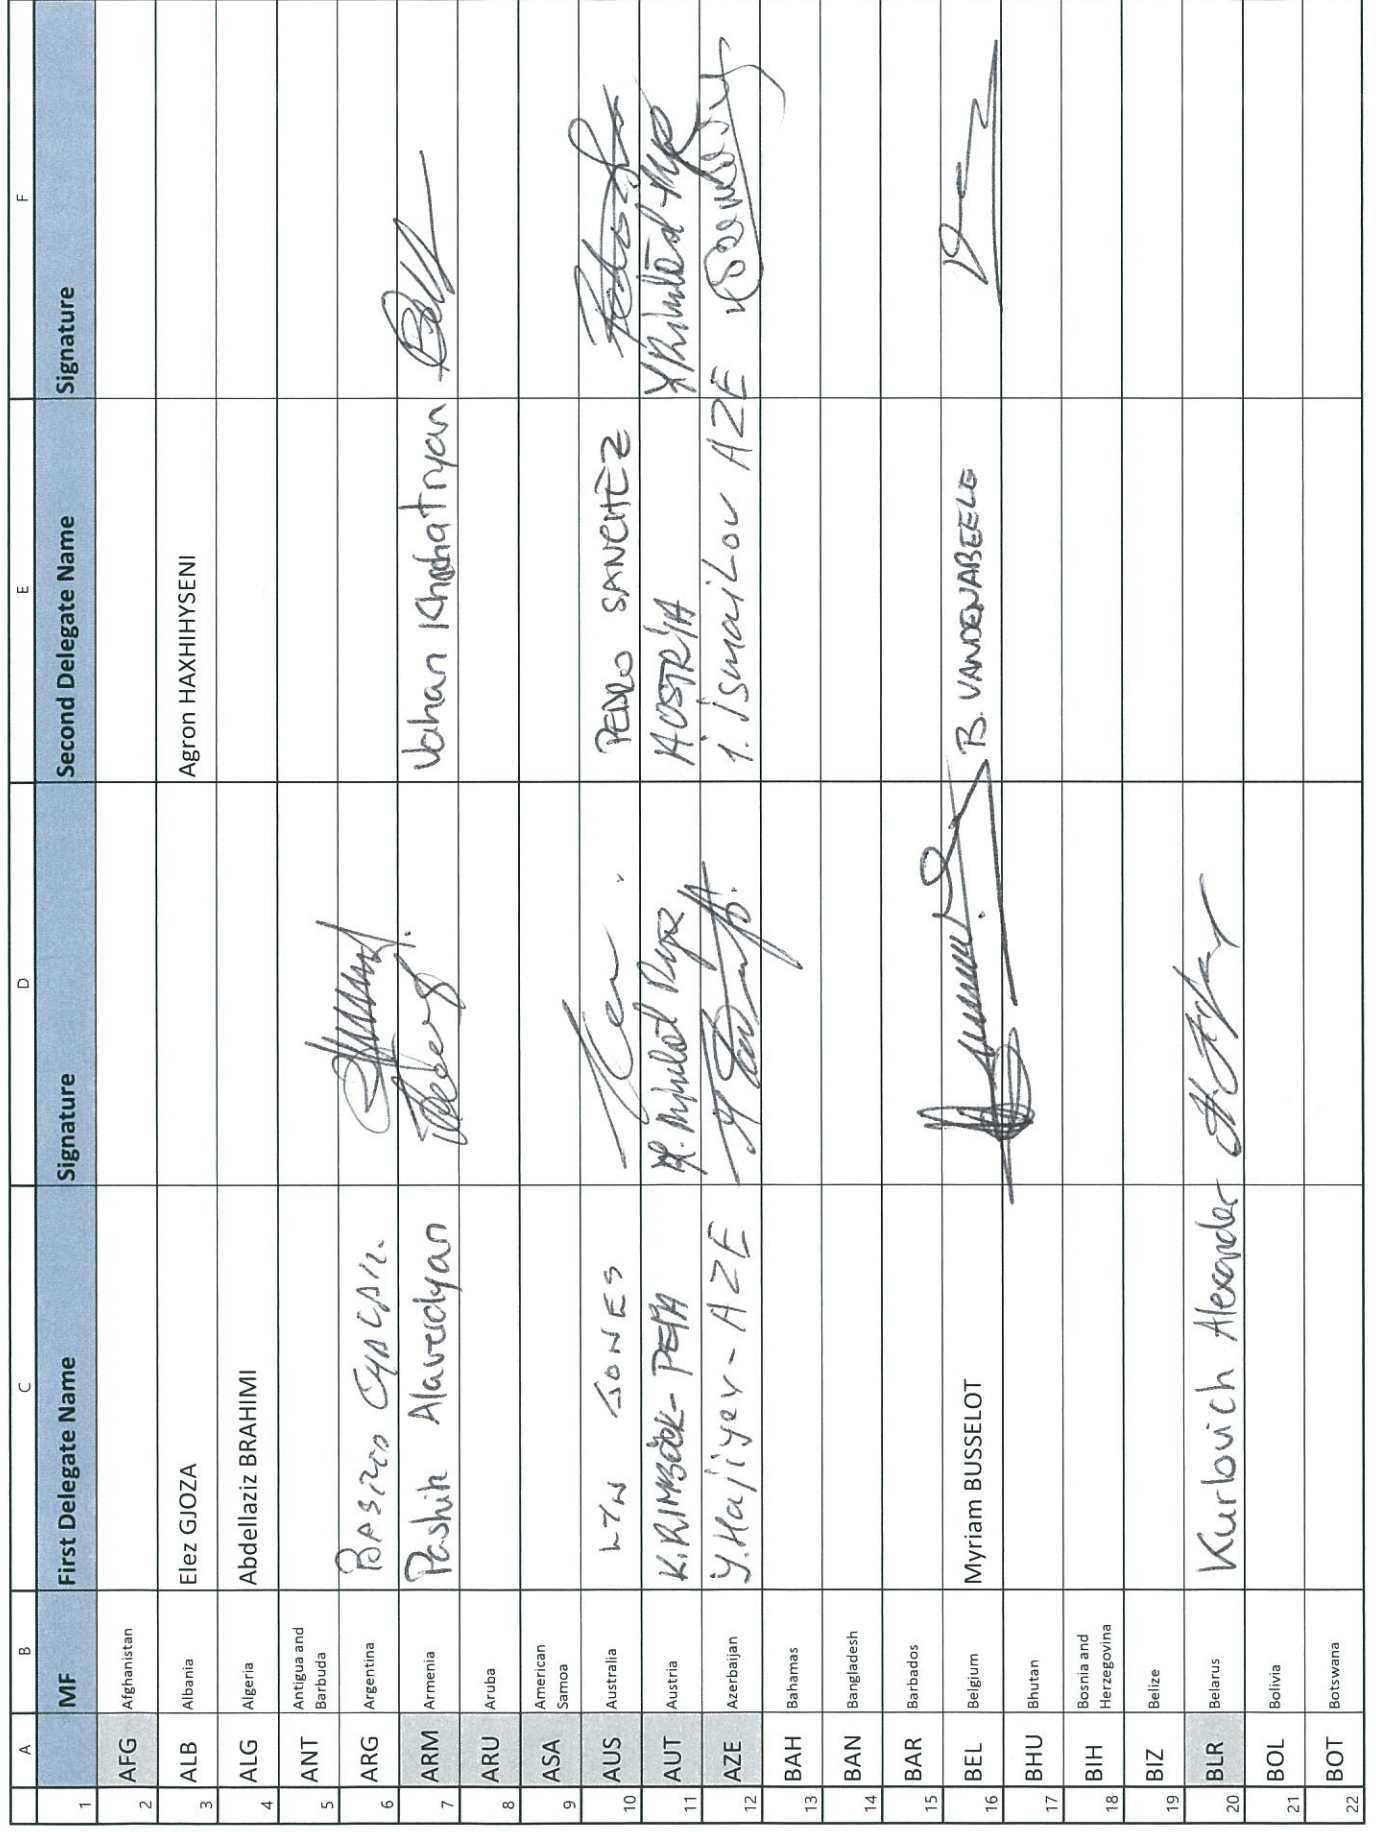 A B C D E F
1 MF First Delegate Name Signature Second Delegate Name Signature
2 AFG Afghanistan
3 ALB Albania Elez GJOZA Agron HAXHIHYSENI
4 ALG Algeria Abdellaziz BRAHIMI
5 ANT Antigua and Barbuda
6 ARG Argentina
7 ARM Armenia Pashik Alaverdyan Vahan Khachatryan
8 ARU Aruba
9 ASA American Samoa
10 AUS Australia LYN JONES PEDRO SANCHEZ
11 AUT Austria K. RIMBÖCK-PEPA AUSTRIA
12 AZE Azerbaijan Y. Hajiyev - AZE I. Ismailov AZE
13 BAH Bahamas
14 BAN Bangladesh
15 BAR Barbados
16 BEL Belgium Myriam BUSSELOT B. VANDENABEELE
17 BHU Bhutan
18 BIH Bosnia and Herzegovina
19 BIZ Belize
20 BLR Belarus Kurlovich Alexander
21 BOL Bolivia
22 BOT Botswana